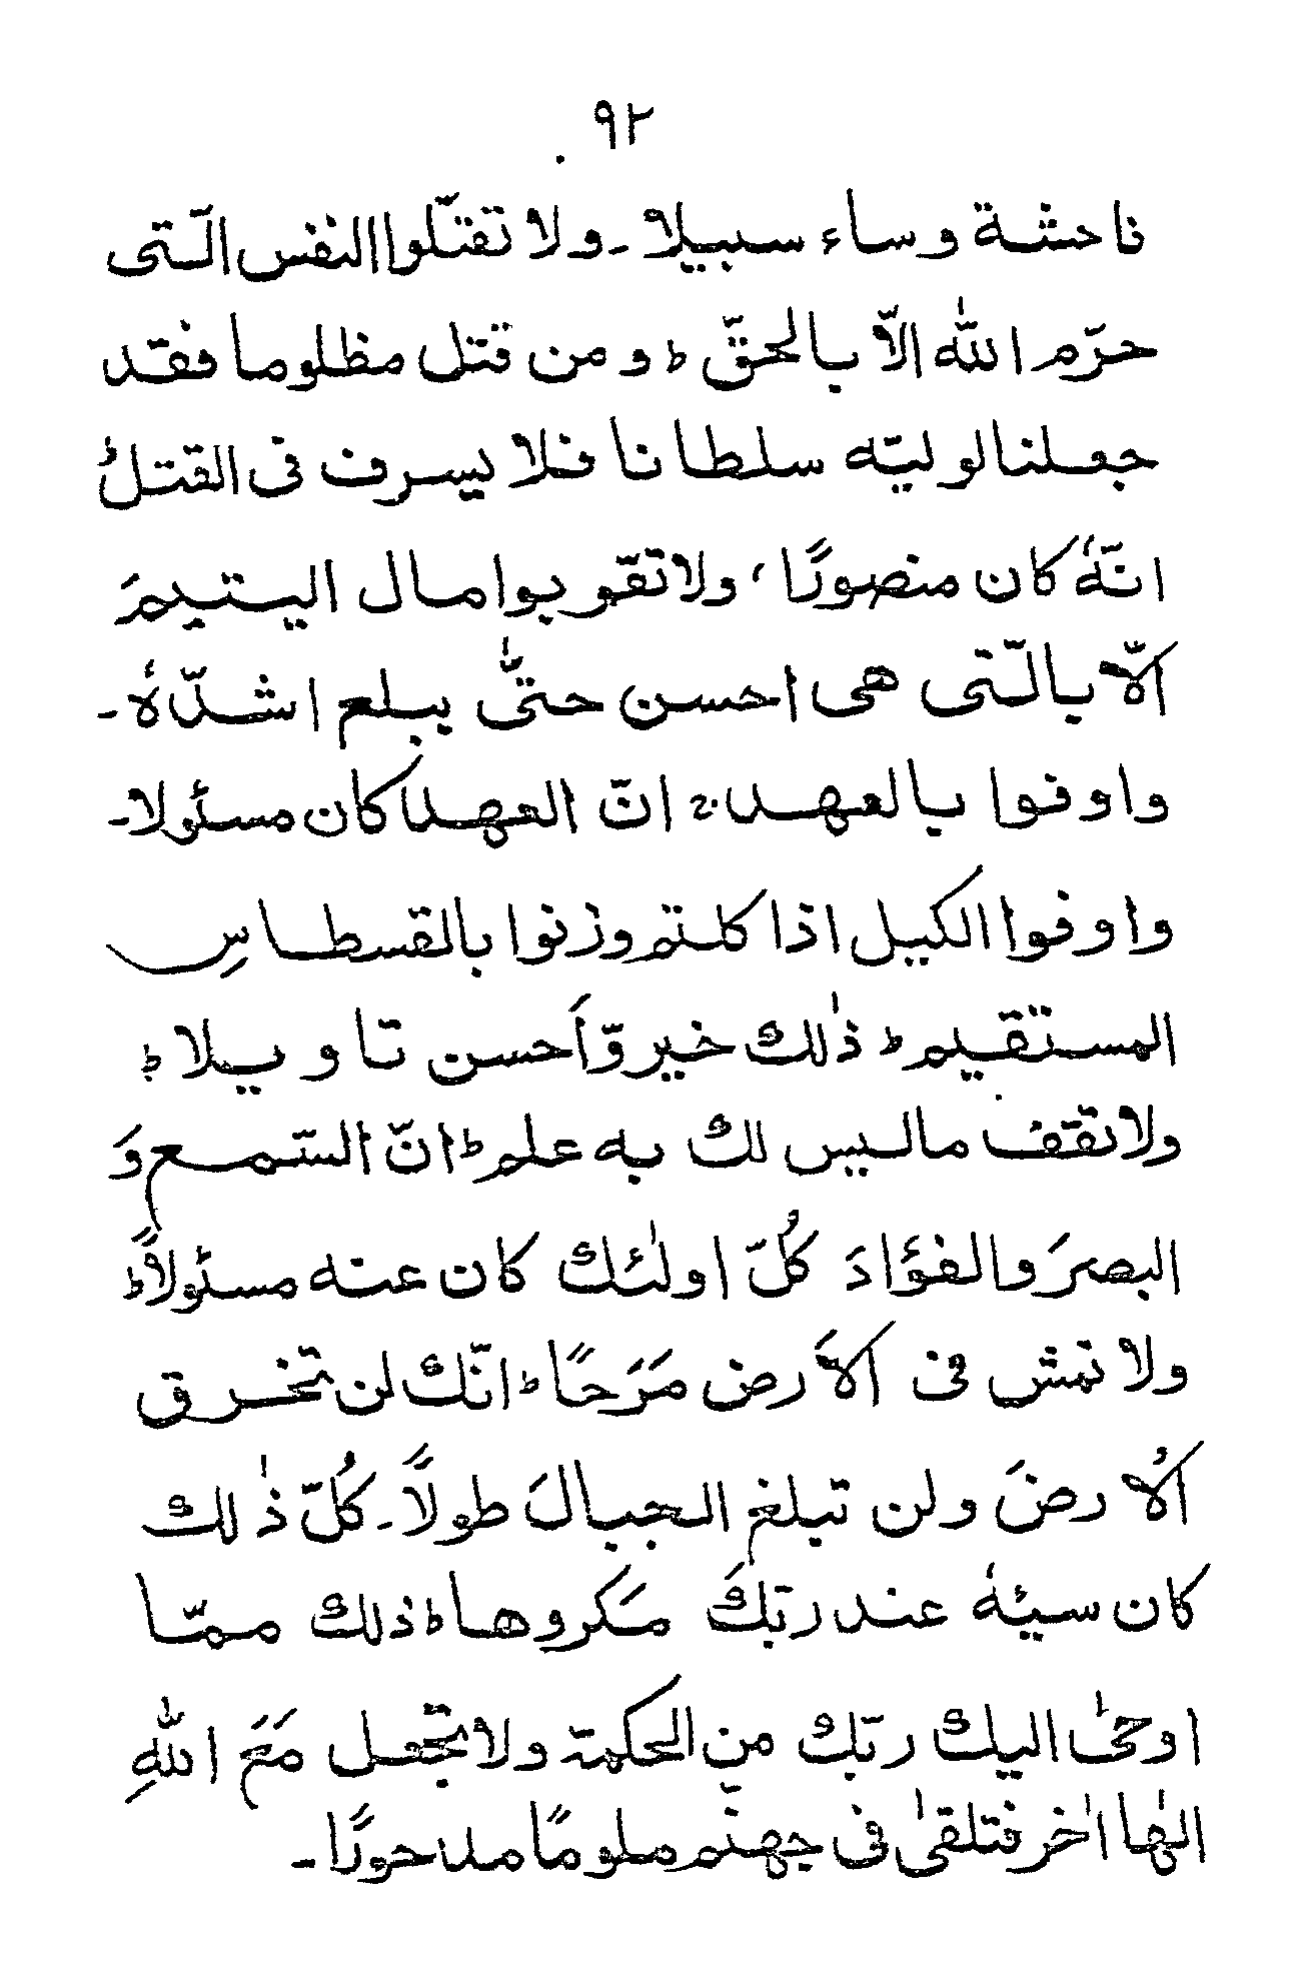 ٩٢
فاحشة وساء سبيلا ۔ ولا تقتّلوا النفس الّتى
حرّم اللّٰه الاّ بالحقّ ط ومن قتل مظلوما فقد
جعلنا لوليّه سلطانا فلا يسرف فى القتل ط
انّهٗ كان منصورًا ، ولا تقّربوا مال اليتيمَ
الّا بالّتى هى احسن حتّٰى يبلع اشدّهٗ ۔
واوفوا بالعهد ج انّ العهد كان مسئولا ۔
واوفوا الكيل اذا كلتم وزنوا بالقسطاسِ
المستقيم ط ذٰلك خير وّاَحسن تاويلا ط
ولا تقف ماليس لك به علم ط انّ السّمع وَ
البصرَ والفؤادَ كُلّ اولٰئك كان عنه مسئولاً ط
ولا تمش فى الاَرض مَرَحًا ط انّك لن تخرق
الاُرضَ ولن تبلغ الجبالَ طولاً ۔ كُلّ ذٰلك
كان سيئهٗ عند ربّكَ مَكروها ط ذلك ممّا
اوحىٰ اليك ربّك من الحكمة ولا تجّعل مَعَ اللّٰهِ
الٰها اٰخر فتلقىٰ فى جهنّم ملومًا مدحورًا ۔